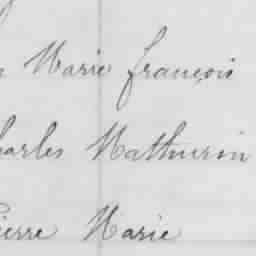 Marie françois
harles Mathurin
ierre Marie